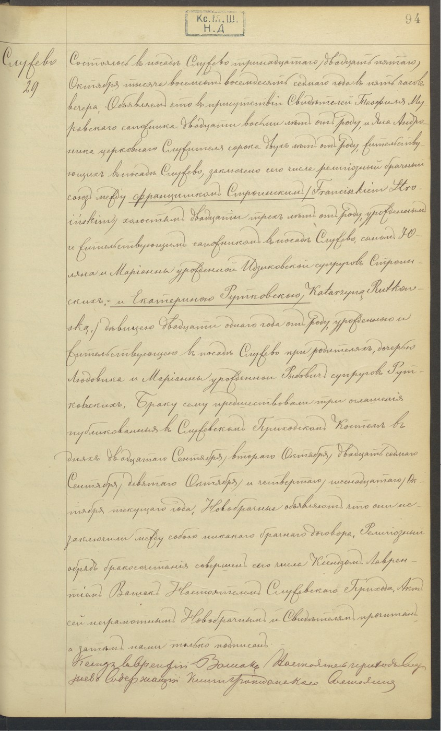 Кс. III. III.
Н. Д
94
Слуžево
29
Состоялось въ посадѣ Служево тринадцатаго / двадцать пятаго /
Октября тысяча восемьсотъ восемьдесятъ седьмаго года въ пять часовъ
вечера. Объявляемъ что въ присутствіи Свидѣтелей Теофиля
сапожника двадцати восьми лѣтъ отъ роду, и Яна Андр
церковнаго Служителя сорока двухъ лѣтъ отъ роду, жительству
ющихъ въ посадѣ Служево, заключенъ сего числа религіозный брачный
союзъ между Францишкомъ Строинскимъ / Franciszkiem Stro
ińskim/ холостымъ двадцати трехъ лѣтъ отъ роду, урожденнымъ
и жительствующимъ сапожникомъ въ посадѣ Служево, сыномъ Ю
ліяна и Маріанны урожденной супруговъ Строин
скихъ, - и Екатериною Рутковскою / Katarzyną Rutkow-
ską / дѣвицею двадцати одного года отъ роду, урожденною и
жительствующею въ посадѣ Служево при родителяхъ, дочерью
Людовика и Маріанны урожденной супруговъ Рут-
ковскихъ. Браку сему предшествовали три оглашенія
публикованныя въ Служевскомъ Приходскомъ Костелѣ въ
дняхъ двадцатаго Сентября / втораго Октября, двадцать седьмаго
Сентября / девятаго Октября и четвертаго / шестнадцатаго / Ок
тября текущаго года. Новобрачные объявляютъ что они не
заключили между собою никакого брачнаго договора. Религіозный
обрядъ бракосочетанія совершенъ сего числа Ксендзомъ Лаврен-
тіемъ Настоятелемъ Служевскаго Прихода. Актъ
сей неграмотнымъ Новобрачнымъ и Свидѣтелямъ прочитанъ
а затѣмъ нами только подписанъ.
Ксендзъ Лаврентій Настоятель прихода Слу
жево Содержащій Книги Гражданскаго Состоянія